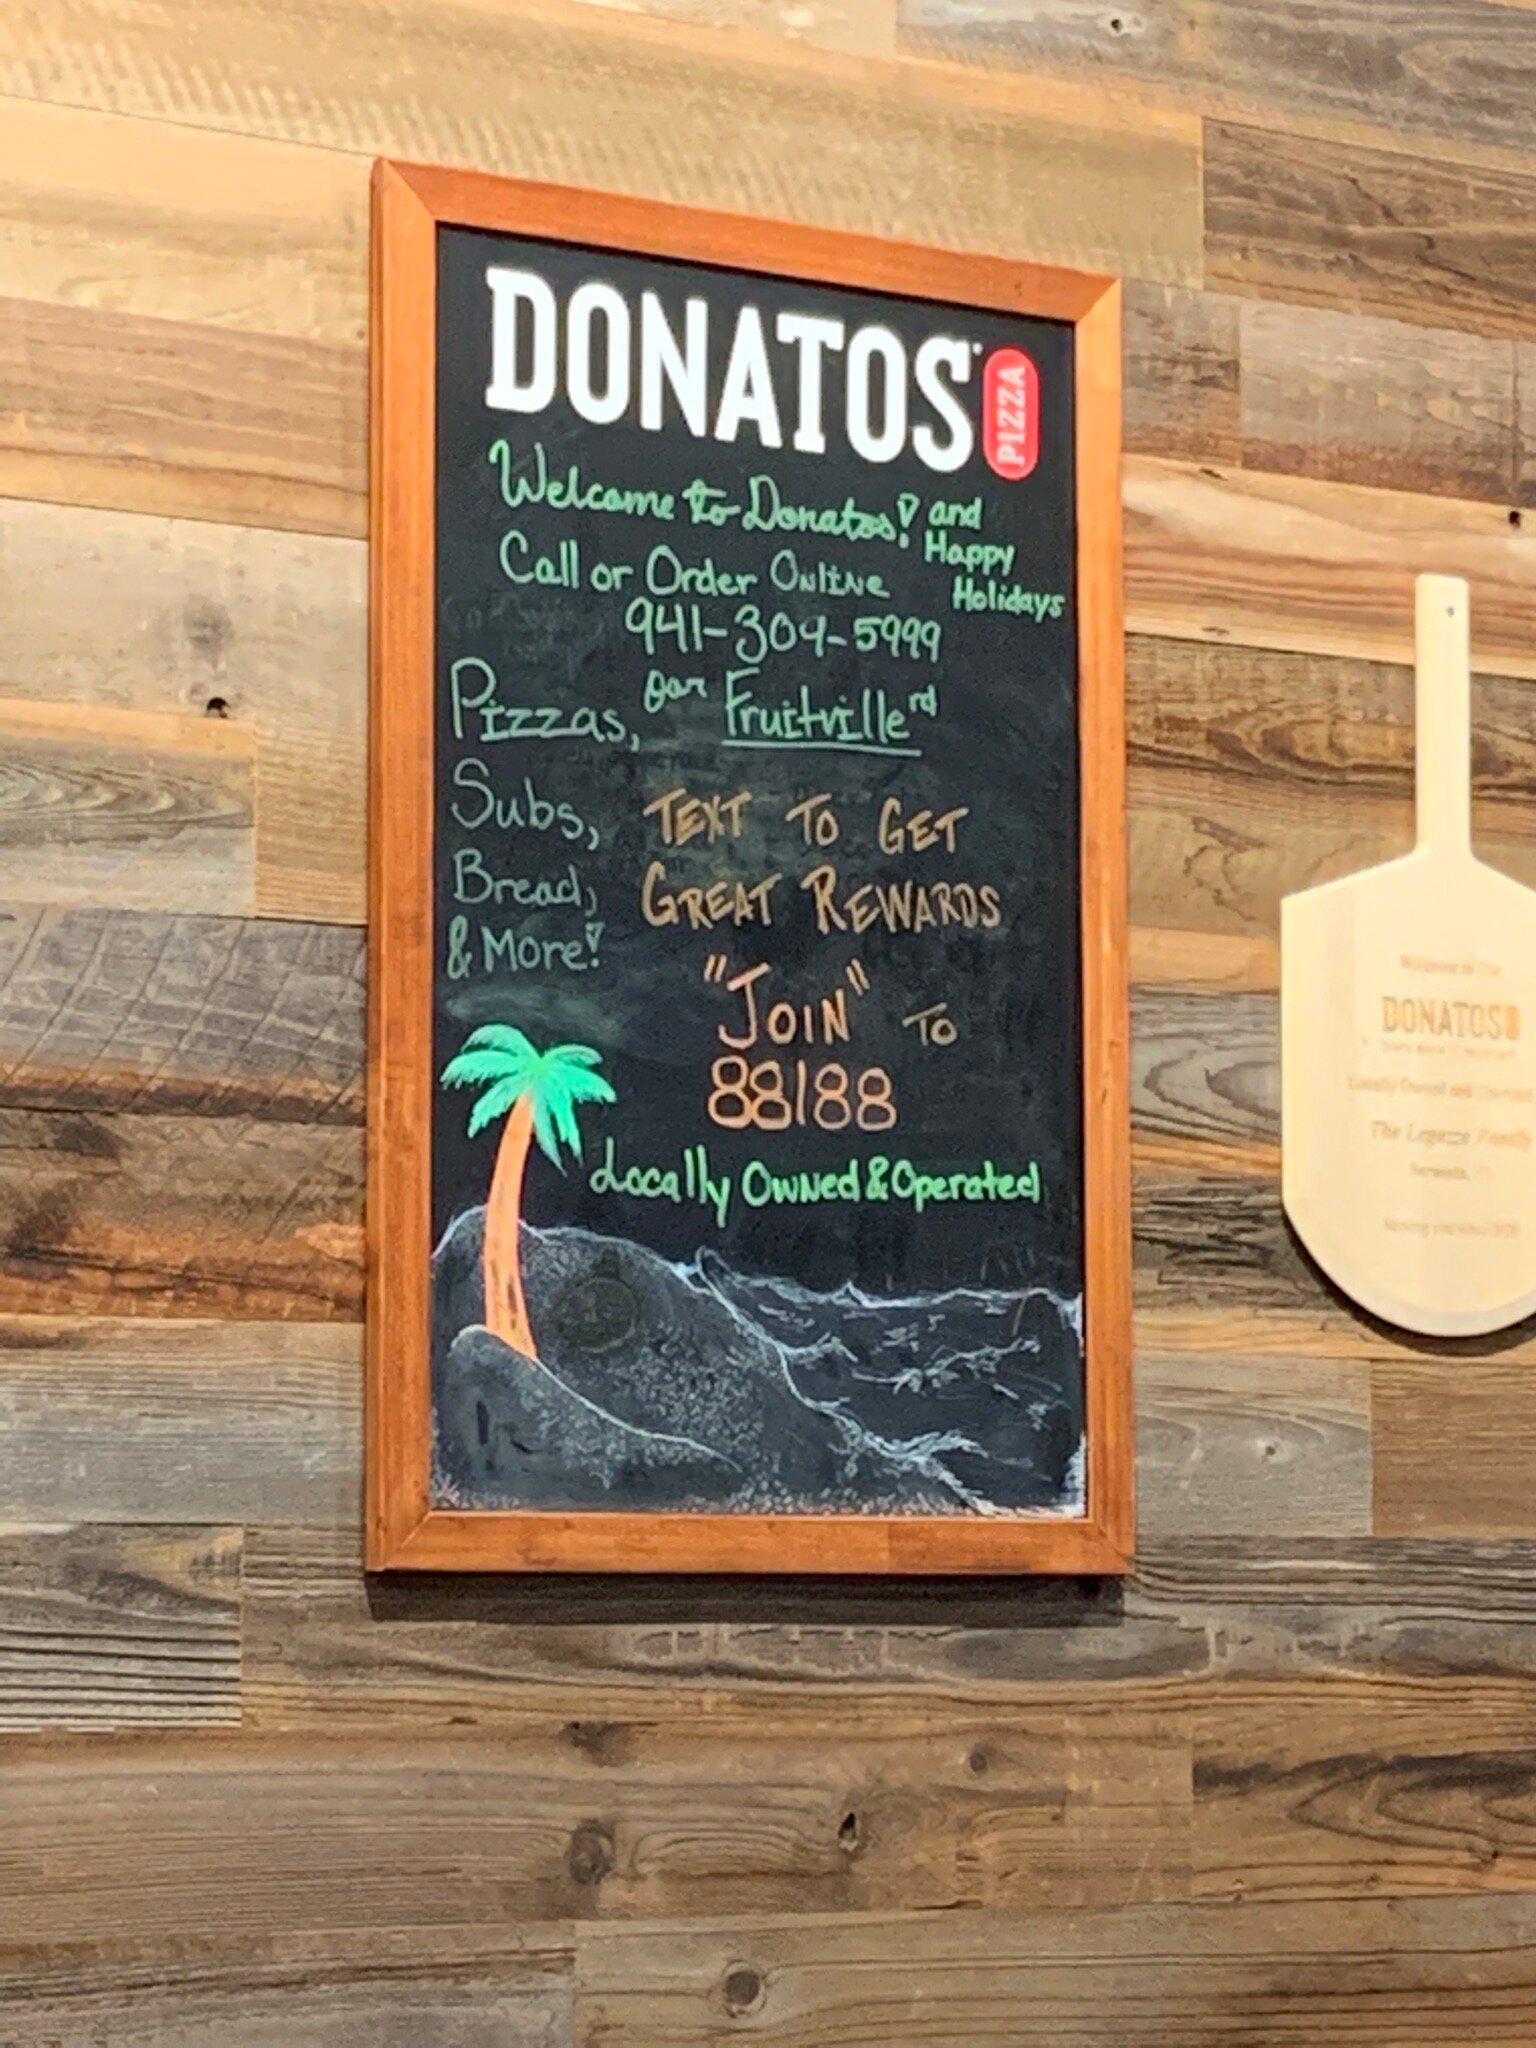 DONATOS PIZZA
Welcome to Donatos! and
Happy
Holidays
Call or Order Online
941-309-5999
Fruitville rd
Pizzas,
Subs,
Bread,
& More!
TEXT TO GET
GREAT REWARDS
"JOIN" TO
88188
Locally Owned & Operated
Welcome to The
DONATOS
Locally Owned and
The Legazzo Family
Sarasota,